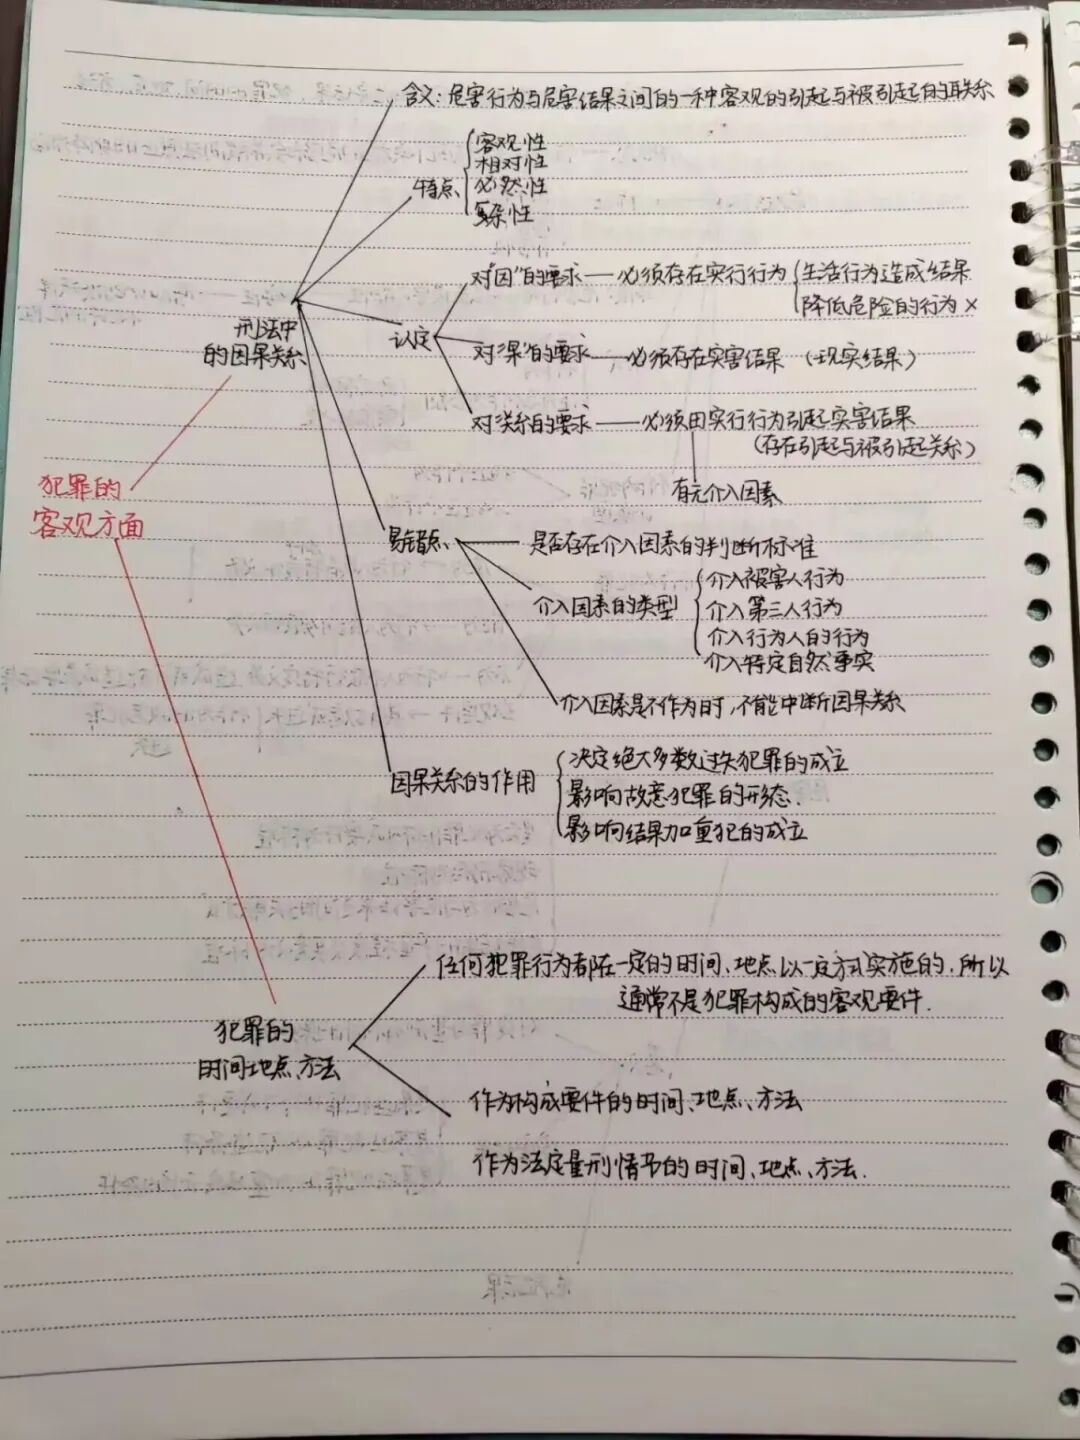 含义：危害行为与危害结果之间的一种客观的引起与被引起的联系
特点
客观性
相对性
必然性
复杂性
刑法中
的因果关系
认定
对“因”的要求——必须存在实行行为
生活行为造成结果
降低危险的行为 ×
对“果”的要求——必须存在实害结果（现实结果）
对“关系”的要求——必须由实行行为引起实害结果
（存在引起与被引起关系）
有无介入因素
犯罪的
客观方面
易错点
是否存在介入因素的判断标准
介入因素的类型
介入被害人行为
介入第三人行为
介入行为人的行为
介入特定自然事实
介入因素是不作为时，不能中断因果关系
因果关系的作用
决定绝大多数过失犯罪的成立
影响故意犯罪的形态.
影响结果加重犯的成立
任何犯罪行为都在一定的时间、地点以一定方式实施的，所以
通常不是犯罪构成的客观要件.
犯罪的
时间地点、方法
作为构成要件的时间、地点、方法
作为法定量刑情节的时间、地点、方法.